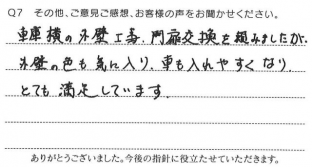 Q7 その他、ご意見ご感想、お客様の声をお聞かせください。
車庫横の外壁工事、門扉交換を頼みましたが、
外壁の色も気に入り、車も入れやすくなり、
とても満足しています。
ありがとうございました。今後の指針に役立たせていただきます。